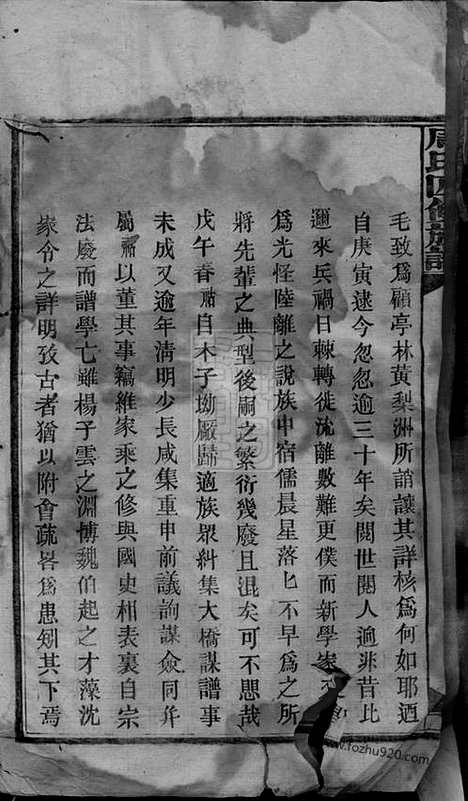 周氏四修族譜
毛致爲顧亭林黃梨洲所誚讓其詳核爲何如耶迺
自庚寅逮今忽忽逾三十年矣閱世閱人逈非昔比
邇來兵禍日棘轉徙沈離數難更僕而新學家
爲光怪陸離之說族中宿儒晨星落匕不早爲之所
將先輩之典型後嗣之繁衍幾廢且混矣可不悲哉
戊午春 自木子坳厰歸適族眾糾集大橋謀譜事
未成又逾年清明少長咸集重申前議詢謀僉同幷
屬 以董其事竊維家乘之修與國史相表裏自宗
法廢而譜學亡雖楊子雲之淵博魏伯起之才藻沈
家令之詳明攷古者猶以附會疏畧爲患矧其下焉
www.fozhu920.com